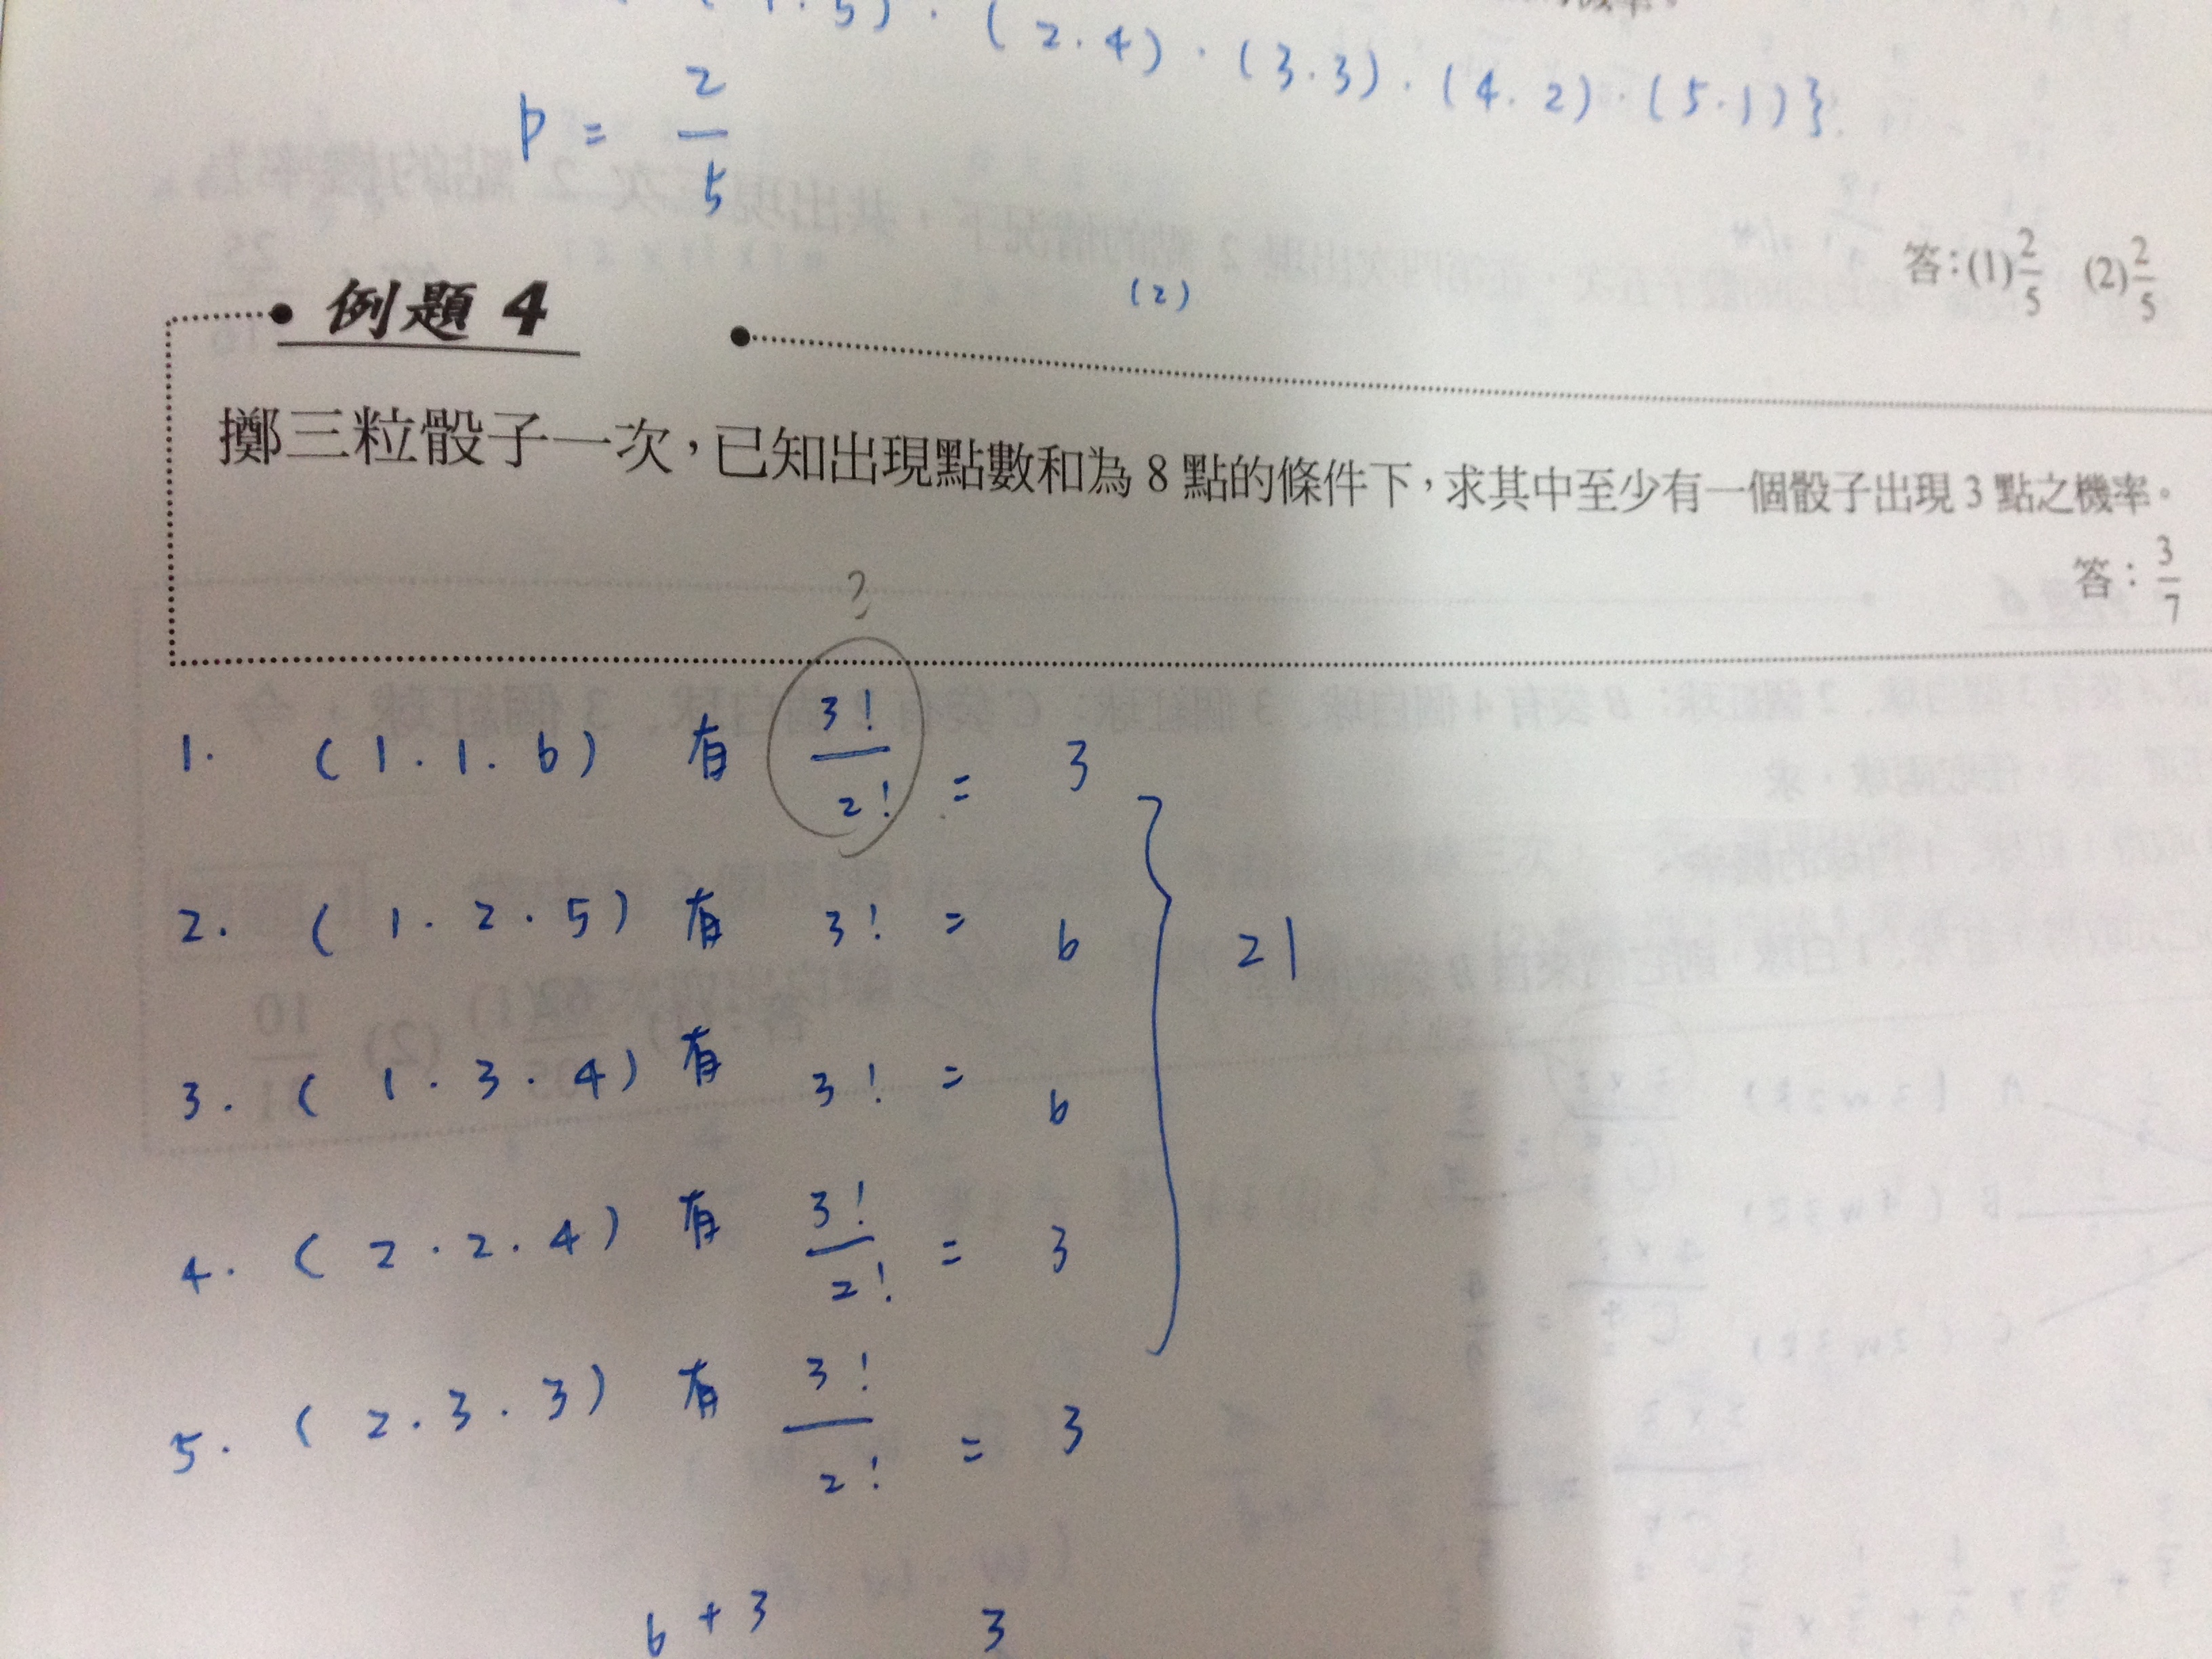 5)．(2．4)．(3．3)．(4．2)．(5．1)}
p = 2/5
答：(1)2/5 (2)2/5
(2)
例題 4
擲三粒骰子一次，已知出現點數和為 8 點的條件下，求其中至少有一個骰子出現 3 點之機率。
答：3/7
?
1. (1．1．6) 有 3!/2! = 3
2. (1．2．5) 有 3! = 6
21
3. (1．3．4) 有 3! = 6
4. (2．2．4) 有 3!/2! = 3
5. (2．3．3) 有 3!/2! = 3
6+3 3